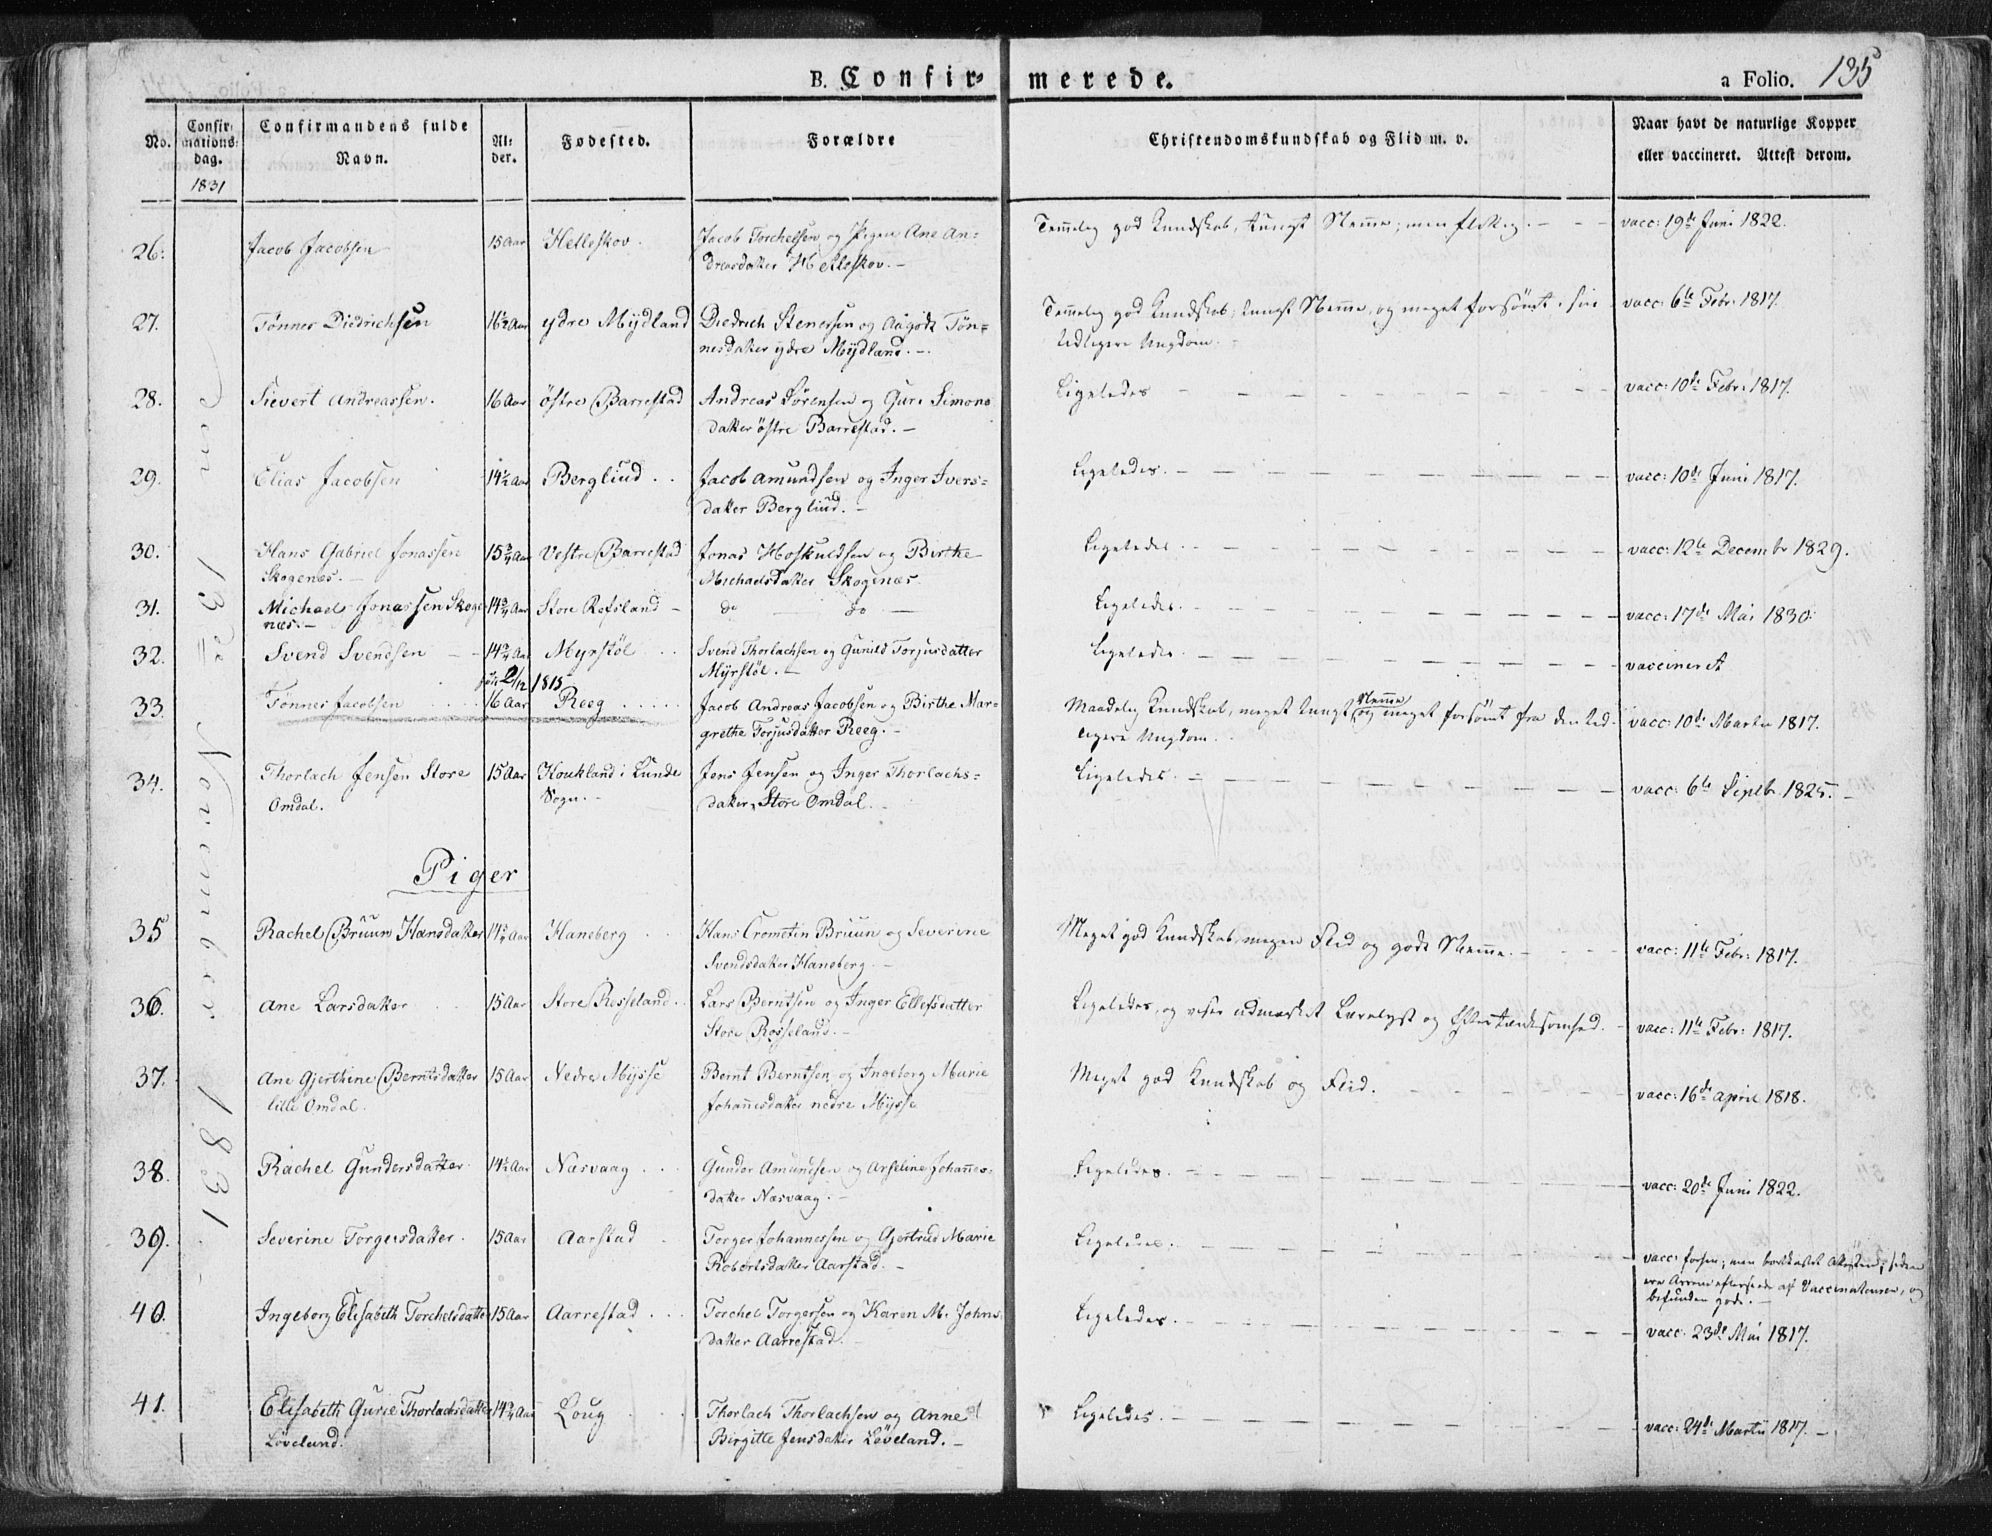 B. Confir-
merede.
a Folio. 135
No.
Confir-
mations-
dag.
1831
Confirmandens fulde
Navn.
Al-
der.
Fødested.
Forældre
Christendomskundskab og Flid m. v.
Naar havt de naturlige Kopper
eller vaccineret. Attest derom.
Den 13de November 1831.
26. Jacob Jacobsen 15 Aar Helleskov. Jacob Torchelsen og Pigen Ane An-
dreasdatter Helleskov. -
Temelig god Kundskab, tungt Nemme; men flittig. - - - vacc: 19de Juni 1822.
27. Tønnes Diedrichsen 16½ Aar ydre Mydland Diedrich Stenersen og Aagodt Tøn-
nesdatter ydre Mydland. -
Temelig god Kundskab, tungt Nemme, og meget forsømt i sin vacc: 6te Febr: 1817.
tidligere Ungdom.
28. Sievert Andreassen. 16 Aar østre Barrestad Andreas Sørensen og Guri Simons
datter østre Barrestad. -
Ligeledes - - - vacc: 10de Febr: 1817.
29. Elias Jacobsen 14½ Aar Bergliud . . Jacob Amundsen og Inger Ivers-
datter Bergliud. -
Ligeledes. - - - vacc: 10de Juni 1817.
30. Hans Gabriel Jonassen 15¾ Aar Vestre Barrestad Jonas Hoskuldsen og Birthe
Skogenæs. - Michaelsdatter Skogenæs
Ligeledes. - - - vacc: 12te Decembr 1829.
31. Michael Jonassen Skoge- 14¾ Aar Store Refsland - do do -
næs. -
Ligeledes. - - - vacc: 17de Mai 1830.
32. Svend Svendsen - - 14¾ Aar Myrstøl . . Svend Thorlachsen og Gunild Torjusdatter
Myrstøl. -
Ligeledes - - - vaccineret
2/12 1815
33. Tønnes Jacobsen . . . . 16 Aar Reeg . . . . . Jacob Andreas Jacobsen og Birthe Mar-
grethe Torjusdatter Reeg. -
Maadelig Kundskab, meget tungt Nemme og meget forsømt fra den tid- vacc: 10de Martii 1817.
ligere Ungdom.
34. Thorlach Jensen Store 15 Aar Koukland i Lunde Jens Jensen og Inger Thorlachs-
Omdal. Sogn. - datter, Store Omdal. -
Ligeledes. - - - vacc: 6te Septbr 1825. -
Piger
35 Rachel Bruun Hansdatter Aar Haneberg . . Hans Crometin Bruun og Severine
Svendsdatter Haneberg. -
Meget god Kundskab, megen Flid og godt Nemme. - - - vacc: 11te Febr: 1817.
36. Ane Larsdatter 15 Aar Store Rosseland. . Lars Berntsen og Inger Ellefsdatter
Store Rosseland. -
Ligeledes, og viser udmærket Lærelyst og Eftertænksomhed. - vacc: 11te Febr: 1817.
37. Ane Gjerthine Berntsdatter 15 Aar Nedre Mysse Bernt Berntsen og Ingeborg Marie
lille Omdal. Johannesdatter nedre Mysse
Meget god Kundskab og Flid. - - - vacc: 16de April 1818.
38. Rachel Gundersdatter. 14½ Aar Næsvaag . . . Gunder Amundsen og Arseline Johannes-
datter Næsvaag. -
Ligeledes. - - - vacc: 20de Juni 1822.
39. Severine Torgersdatter. 15 Aar Aarstad . Torger Johannessen og Gjertrud Marie
Robertsdatter Aarstad. -
Ligeledes. - - - vacc: forhen; men bortkastet Attesten; siden
ere Arrene efterseede af Vaccinateuren, og
befunden gode. -
40. Ingeborg Elisabeth Torchelsdatter 15 Aar Aarrestad . . . Torchel Torgersen og Karen M. Johns-
datter Aarrestad.
Ligeledes. - - - vacc. 23de Mai 1817.
41. Elisabeth Gurie Thorlachsdatter 14¾ Aar Loug . . . Thorlach Thorlachsen og Anne
Løveland. Birgitte Jensdatter Løveland. -
Ligeledes. - - - vacc: 24de Martii 1817. -